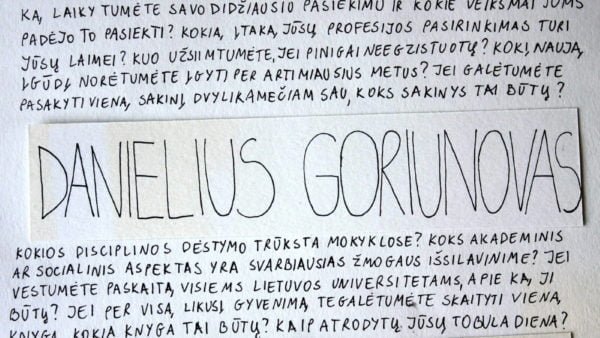 KĄ, LAIKYTUMĖTE SAVO DIDŽIAUSIO PASIEKIMU IR KOKIE VEIKSMAI JUMS
PADĖJO TO PASIEKTI? KOKIĄ ĮTAKĄ, JŪSŲ PROFESIJOS PASIRINKIMAS TURI
JŪSŲ LAIMEI? KUO UŽSIIMTUMĖTE, JEI PINIGAI NEEGZISTUOTŲ? KOKĮ NAUJĄ,
ĮGŪDĮ NORĖTUMĖTE ĮGYTI PER ARTIMIAUSIUS METUS? JEI GALĖTUMĖTE
PASAKYTI VIENĄ, SAKINĮ, DVYLIKAMEČIAM SAU, KOKS SAKINYS TAI BŪTŲ?
DANIELIUS GORIUNOVAS
KOKIOS DISCIPLINOS DĖSTYMO TRŪKSTA MOKYKLOSE? KOKS AKADEMINIS
AR SOCIALINIS ASPEKTAS YRA SVARBIAUSIAS ŽMOGAUS IŠSILAVINIME? JEI
VESTUMĖTE PASKAITĄ, VISIEMS LIETUVOS UNIVERSITETAMS, APIE KĄ, JI
BŪTŲ? JEI PER VISĄ, LIKUSĮ, GYVENIMĄ, TEGALĖTUMĖTE SKAITYTI VIENĄ,
KNYGĄ, KOKIA KNYGA TAI BŪTŲ? KAIP ATRODYTŲ JŪSŲ TOBULA DIENA?